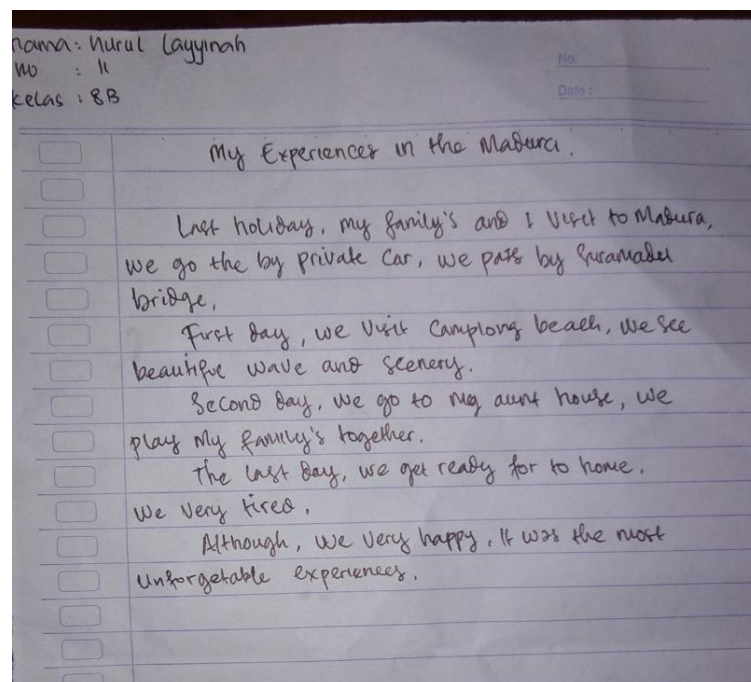 nama: Nurul Layyinah
No : 11
kelas : 8B
No.
Date :
My Experiences in the Madura.
Last holiday, my family's and I visit to Madura,
we go the by private car, we pass by Suramadu
bridge,
First day, we visit Camplong beach, we see
beautiful wave and scenery.
Second day, we go to my aunt house, we
play my family's together.
The last day, we get ready for to home.
we very tired,
Although, we very happy, It was the most
unforgetable experiences.